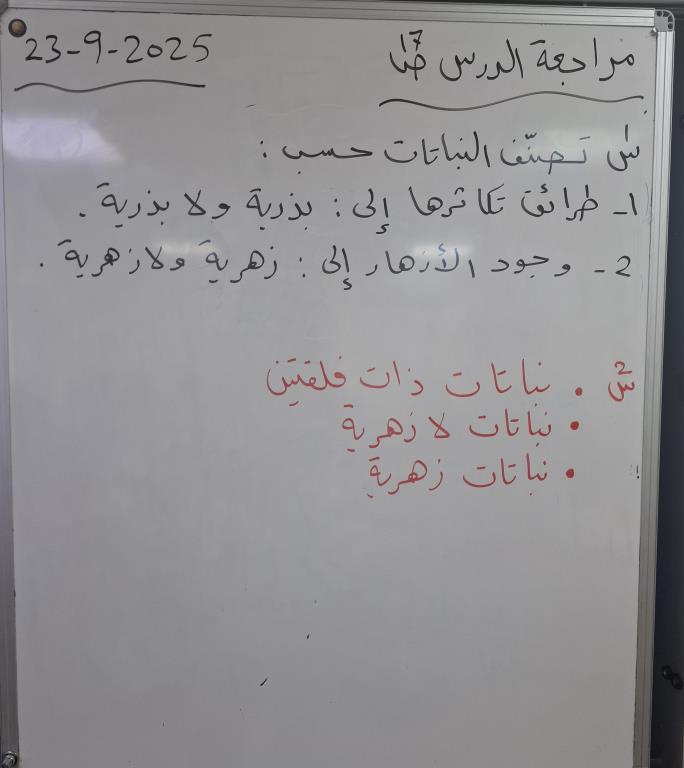 مراجعة الدرس ص17
23-9-2025
س1 تصنّف النباتات حسب :
1- طرائق تكاثرها إلى : بذرية ولا بذرية .
2- وجود الأزهار إلى : زهرية ولازهرية .
س2 • نباتات ذات فلقتين
• نباتات لا زهرية
• نباتات زهرية